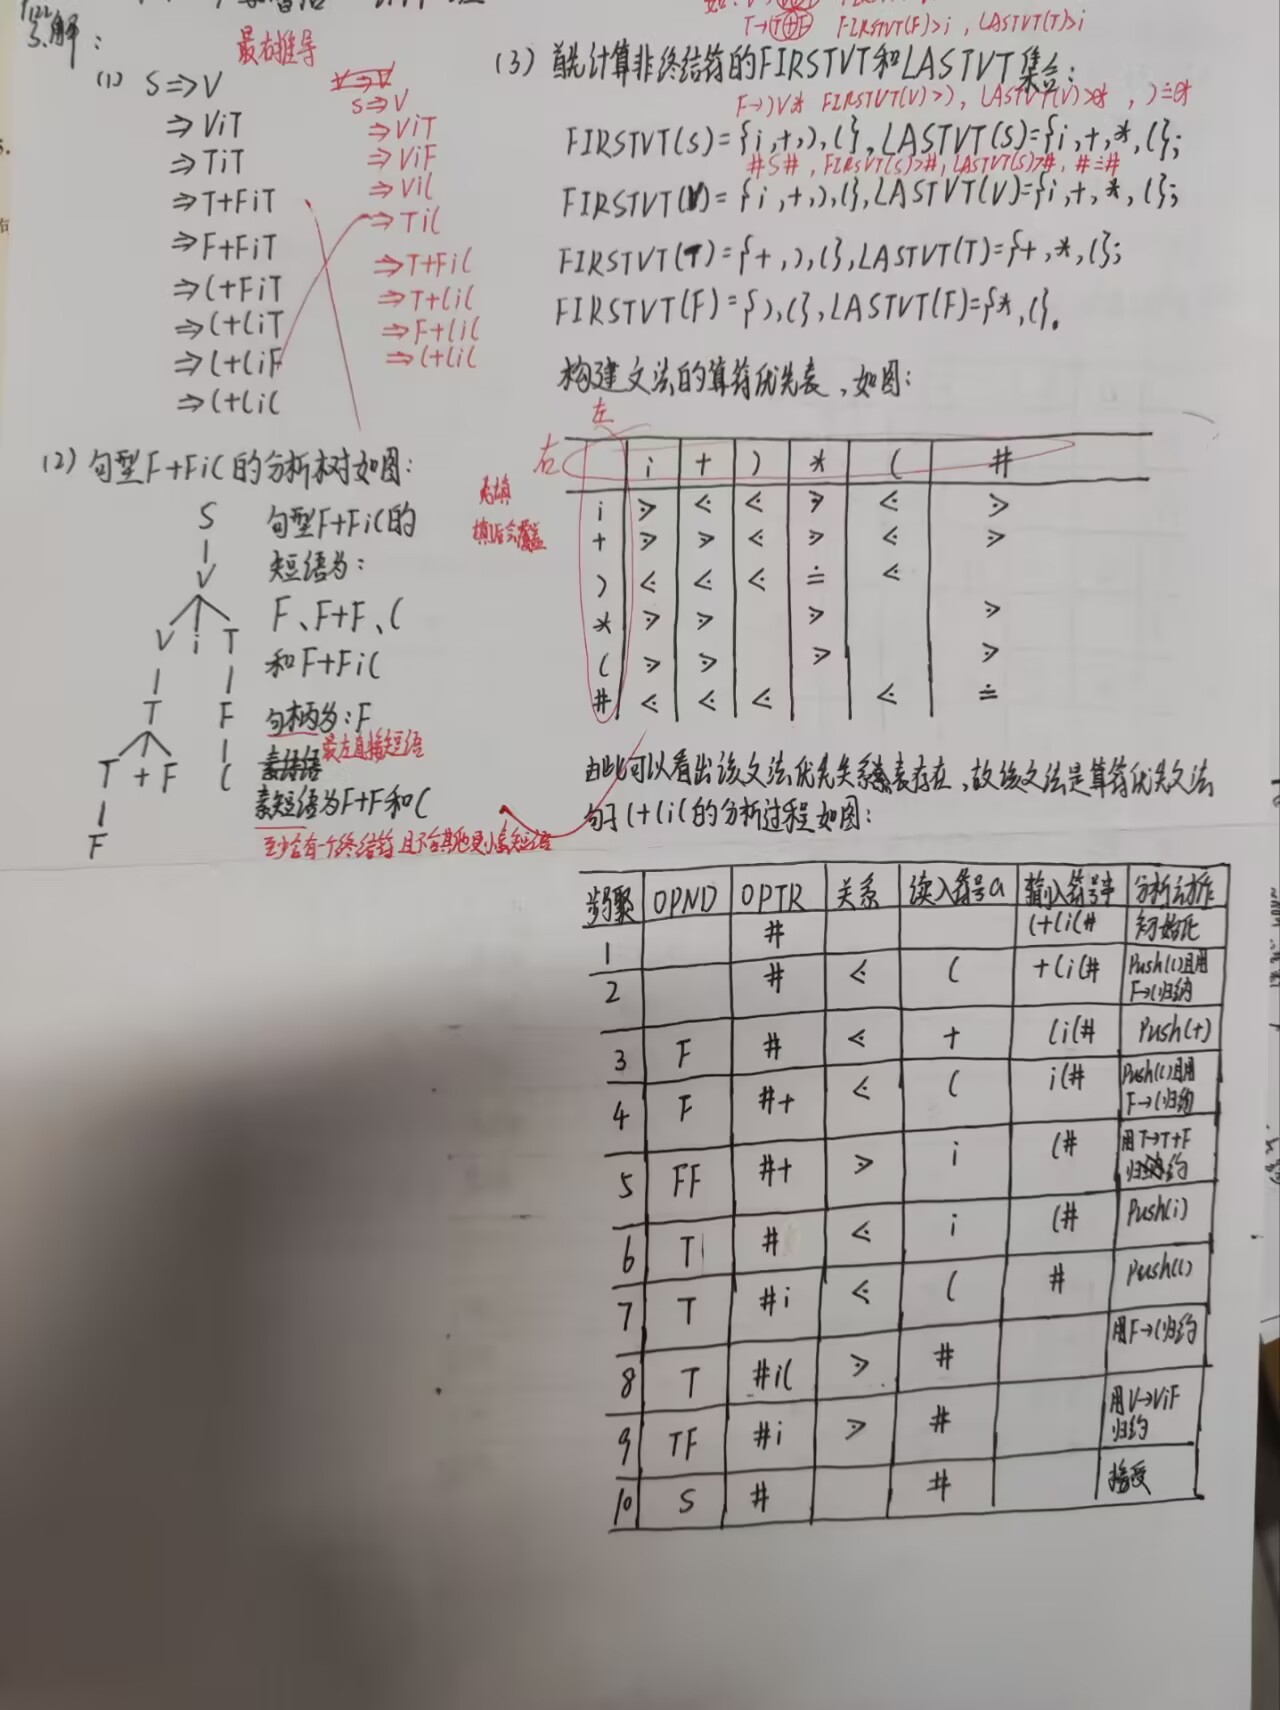 3.解：
T→T+F FIRSTVT(F)>i , LASTVT(T)>i
最右推导
(1) S⇒V
⇒ViT
⇒TiT
⇒T+FiT
⇒F+FiT
⇒(+FiT
⇒(+(iT
⇒(+(iF
⇒(+(i(
V⇒V
S⇒V
⇒ViT
⇒ViF
⇒Vi(
⇒Ti(
⇒T+Fi(
⇒T+(i(
⇒F+(i(
⇒(+(i(
(3) 首先计算非终结符的FIRSTVT和LASTVT集合：
F→)V* FIRSTVT(V)>), LASTVT(V)>*, )≐*
FIRSTVT(S)={i,+,),(}, LASTVT(S)={i,+,*,(};
#S#, FIRSTVT(S)>#, LASTVT(S)>#, #≐#
FIRSTVT(V)={i,+,),(}, LASTVT(V)={i,+,*,(};
FIRSTVT(T)={+,),(}, LASTVT(T)={+,*,(};
FIRSTVT(F)={),(}, LASTVT(F)={*,(}.
构建文法的算符优先表，如图：
左
右
i + ) * ( #
i ⋗ ⋖ ⋖ ⋗ ⋖ ⋗
+ ⋗ ⋗ ⋖ ⋗ ⋖ ⋗
) ⋖ ⋖ ⋖ ≐ ⋖
* ⋗ ⋗ ⋗ ⋗
( ⋗ ⋗ ⋗ ⋗
# ⋖ ⋖ ⋖ ⋖ ≐
(2) 句型F+Fi(的分析树如图：
S
V
V i T
T F
T + F (
F
句型F+Fi(的
短语为：
F、F+F、(
和F+Fi(
句柄为：F
最左直接短语
素短语为F+F和(
至少含有一个终结符且不含其他更小素短语
由此可以看出该文法优先关系表存在，故该文法是算符优先文法
句子(+(i(的分析过程如图：
步骤 OPND OPTR 关系 读入符号a 输入符号串 分析动作
1 # (+(i(# 初始化
2 # ⋖ ( +(i(# Push(()且用F→(归纳
3 F # ⋖ + (i(# Push(+)
4 F #+ ⋖ ( i(# Push(()且用F→(归约
5 FF #+ ⋗ i (# 用T→T+F归约
6 T # ⋖ i (# Push(i)
7 T #i ⋖ ( # Push(()
8 T #i( ⋗ # 用F→(归约
9 TF #i ⋗ # 用V→ViF归约
10 S # # 接受